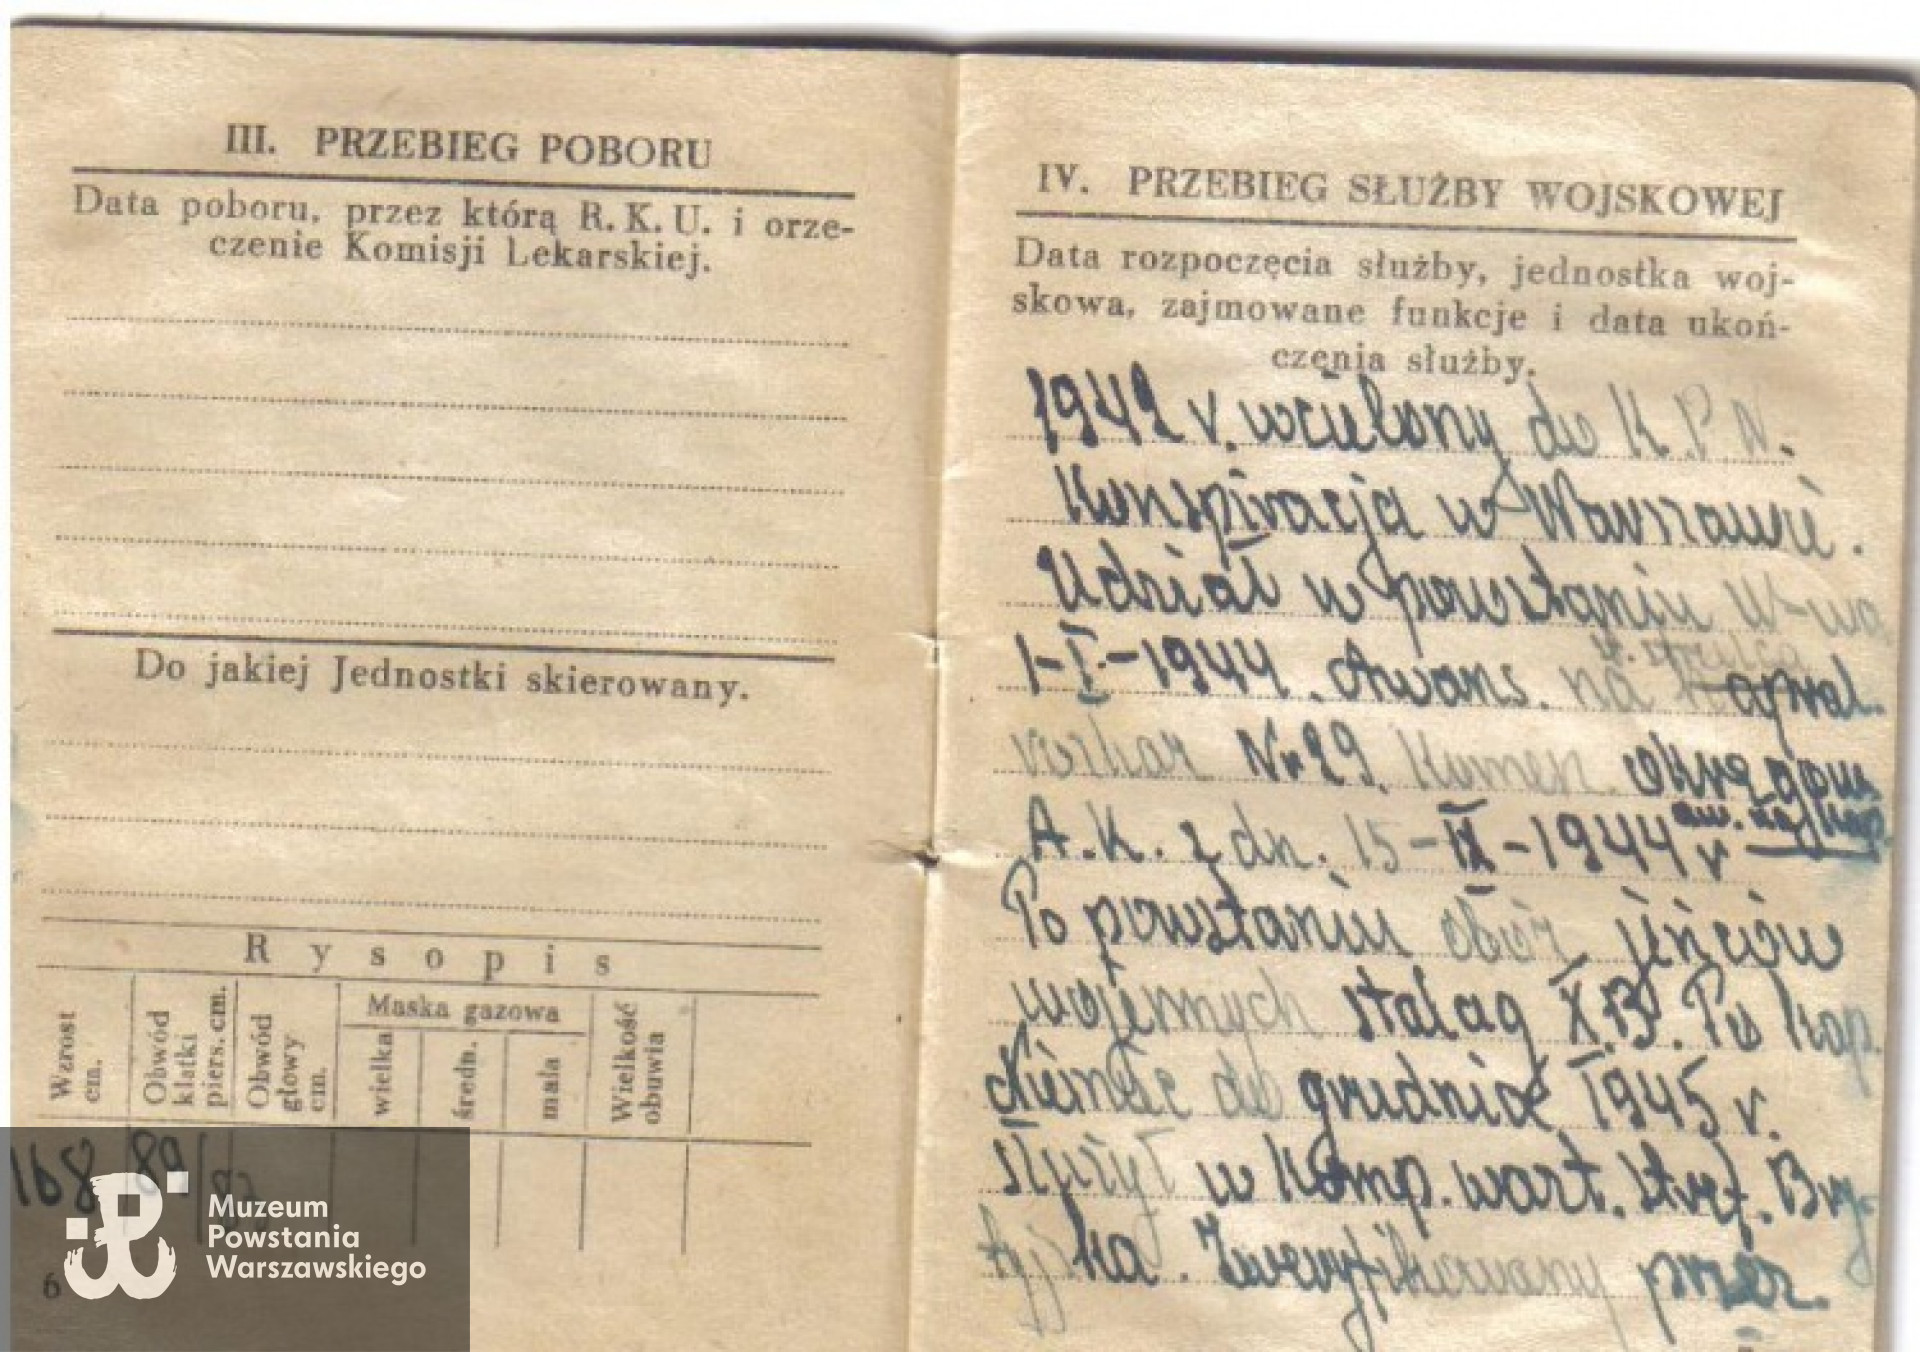 III. PRZEBIEG POBORU
Data poboru, przez którą R. K. U. i orze-
czenie Komisji Lekarskiej.
Do jakiej Jednostki skierowany.
Rysopis
Wzrost cm.
Obwód klatki piers. cm.
Obwód głowy cm.
Maska gazowa
wielka
średn.
mała
Wielkość obuwia
168 89
6
Muzeum
Powstania
Warszawskiego
IV. PRZEBIEG SŁUŻBY WOJSKOWEJ
Data rozpoczęcia służby, jednostka woj-
skowa, zajmowane funkcje i data ukoń-
czenia służby.
1942 r. wcielony do K.P.N.
Konspiracja w Warszawie.
Udział w powstaniu W-wa
st. strzelca
1-I-1944. Awans. na
rozkaz Nr 29. Komen. okręgow
A.K. z dn. 15-IX-1944 r aw. na kap.
Po powstaniu obóz jeńców
wojennych stalag X.B. Po kap.
Niemiec do grudnia 1945 r.
służył w Komp. wart. Bry-
tyjska. Zweryfikowany przez.